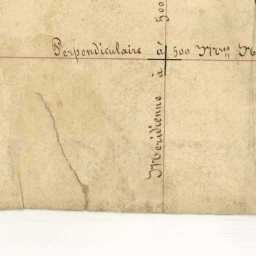 Perpendiculaire à 500
Méridienne à 500